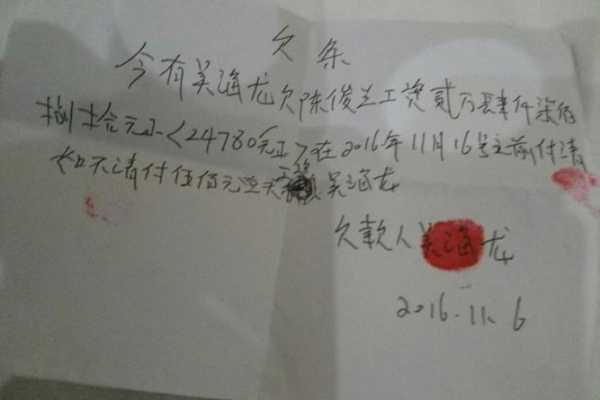 欠条
今有吴海龙欠陈俊兰工资贰万肆仟柒佰
捌拾元正<24780元正>在2016年11月16号之前付清
如不清付伍佰元 吴海龙
欠款人吴海龙
2016.11.6